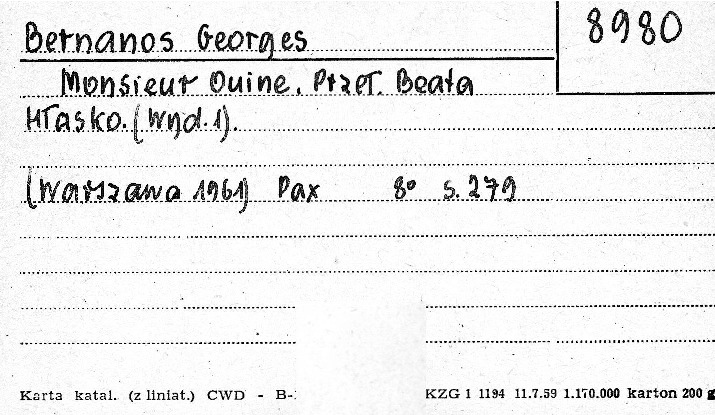 Bernanos Georges
8980
Monsieur Ouine. Przeł. Beata
Hłasko. (Wyd. 1).
(Warszawa 1961) Pax 8° s. 279
Karta katal. (z liniat.) CWD - B-
KZG 1 1194 11.7.59 1.170.000 karton 200 g